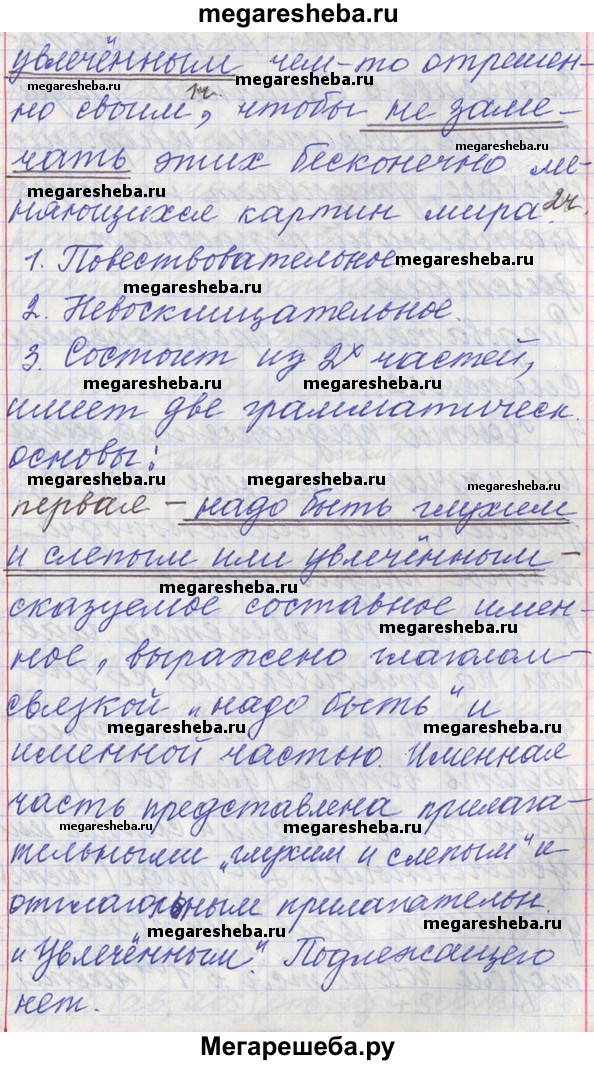 megaresheba.ru
увлечённым чем-то отрешен-
megaresheba.ru megaresheba.ru
1ч.
но своим, чтобы не заме-
megaresheba.ru
чать этих бесконечно ме-
megaresheba.ru
няющихся картин мира. 2ч.
1. Повествовательное.
megaresheba.ru
2. Невосклицательное.
3. Состоит из 2х частей,
megaresheba.ru megaresheba.ru
имеет две грамматическ.
основы:
megaresheba.ru megaresheba.ru megaresheba.ru
первая – надо быть глухим
и слепым или увлечённым –
megaresheba.ru
сказуемое составное имен-
megaresheba.ru
ное, выражено глаголом-
связкой „надо быть" и
megaresheba.ru megaresheba.ru
именной частью. Именная
часть представлена прилага-
megaresheba.ru megaresheba.ru
тельными „глухим и слепым" и
отглагольным прилагательн.
megaresheba.ru megaresheba.ru
„Увлечённым". Подлежащего
нет.
Мегарешеба.ру